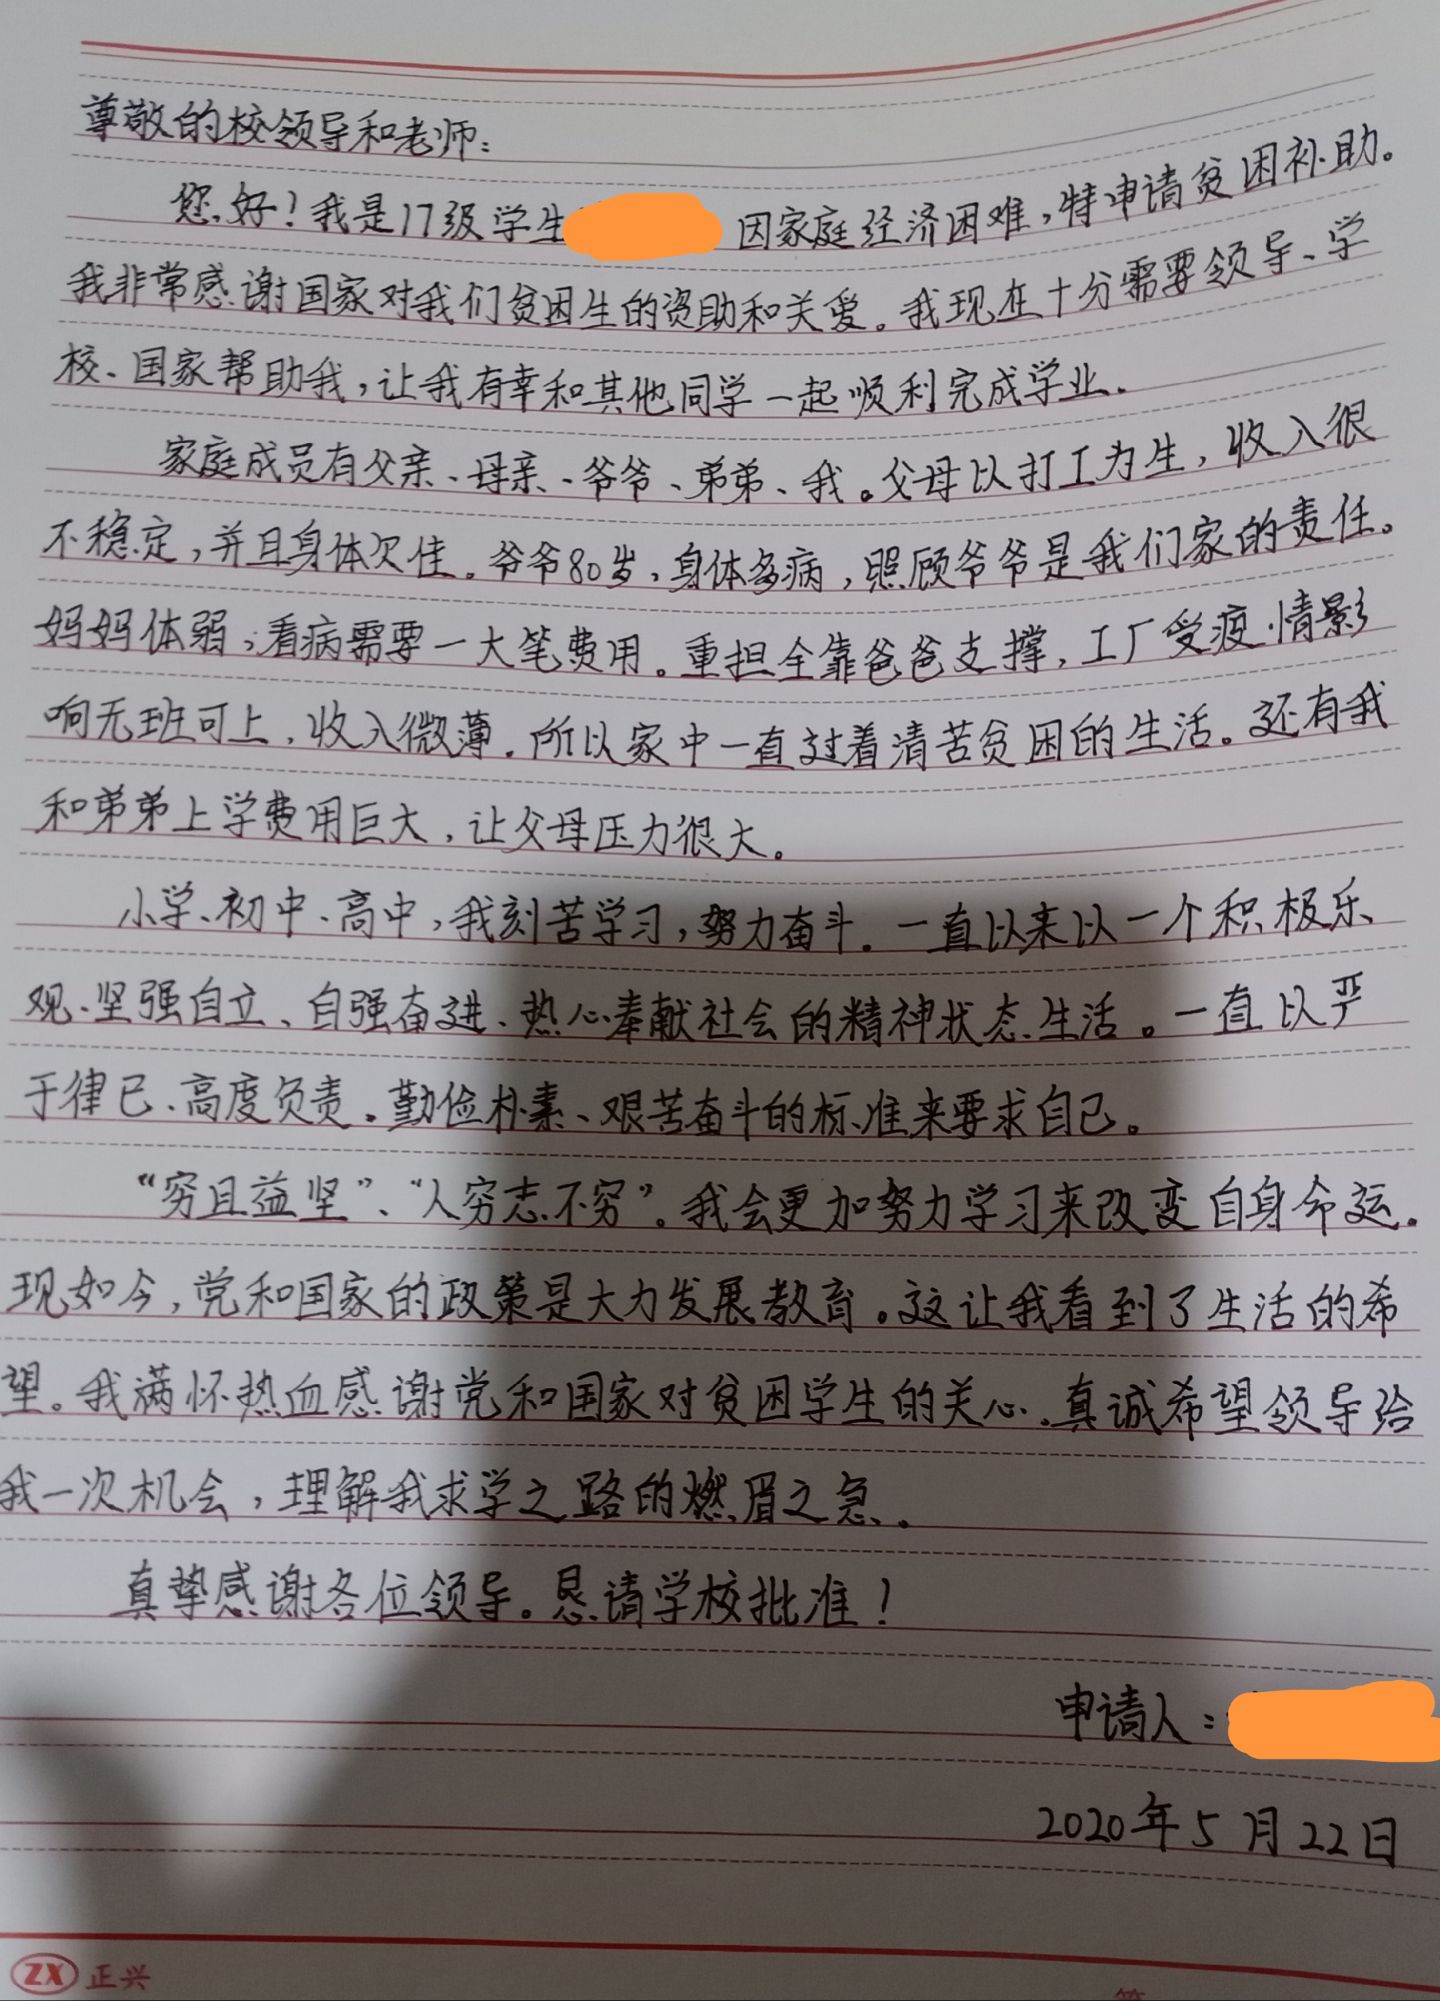 尊敬的校领导和老师：
您好！我是17级学生 因家庭经济困难，特申请贫困补助。
我非常感谢国家对我们贫困生的资助和关爱。我现在十分需要领导、学
校、国家帮助我，让我有幸和其他同学一起顺利完成学业。
家庭成员有父亲、母亲、爷爷、弟弟、我。父母以打工为生，收入很
不稳定，并且身体欠佳。爷爷80岁，身体多病，照顾爷爷是我们家的责任。
妈妈体弱，看病需要一大笔费用。重担全靠爸爸支撑，工厂受疫情影
响无班可上，收入微薄。所以家中一直过着清苦贫困的生活。还有我
和弟弟上学费用巨大，让父母压力很大。
小学、初中、高中，我刻苦学习，努力奋斗。一直以来以一个积极乐
观、坚强自立、自强奋进、热心奉献社会的精神状态生活。一直以严
于律己、高度负责。勤俭朴素、艰苦奋斗的标准来要求自己。
“穷且益坚”、“人穷志不穷”。我会更加努力学习来改变自身命运。
现如今，党和国家的政策是大力发展教育。这让我看到了生活的希
望。我满怀热血感谢党和国家对贫困学生的关心。真诚希望领导给
我一次机会，理解我求学之路的燃眉之急。
真挚感谢各位领导。恳请学校批准！
申请人：
2020年5月22日
ZX 正兴